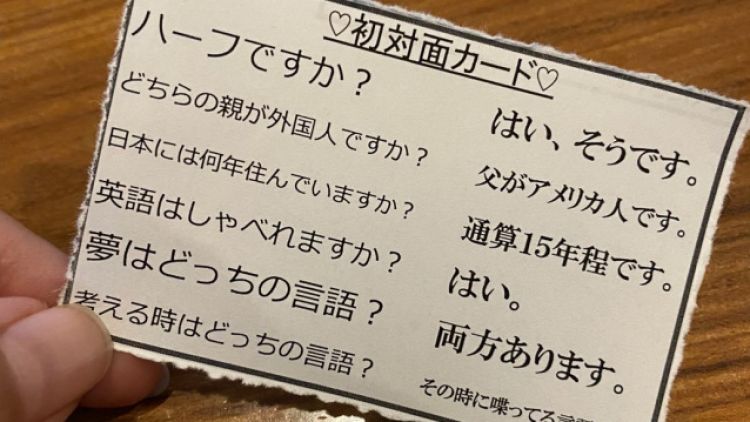 ♡初対面カード♡
ハーフですか？
はい、そうです。
どちらの親が外国人ですか？
父がアメリカ人です。
日本には何年住んでいますか？
通算15年程です。
英語はしゃべれますか？
はい。
夢はどっちの言語？
両方あります。
考える時はどっちの言語？
その時に喋ってる言語